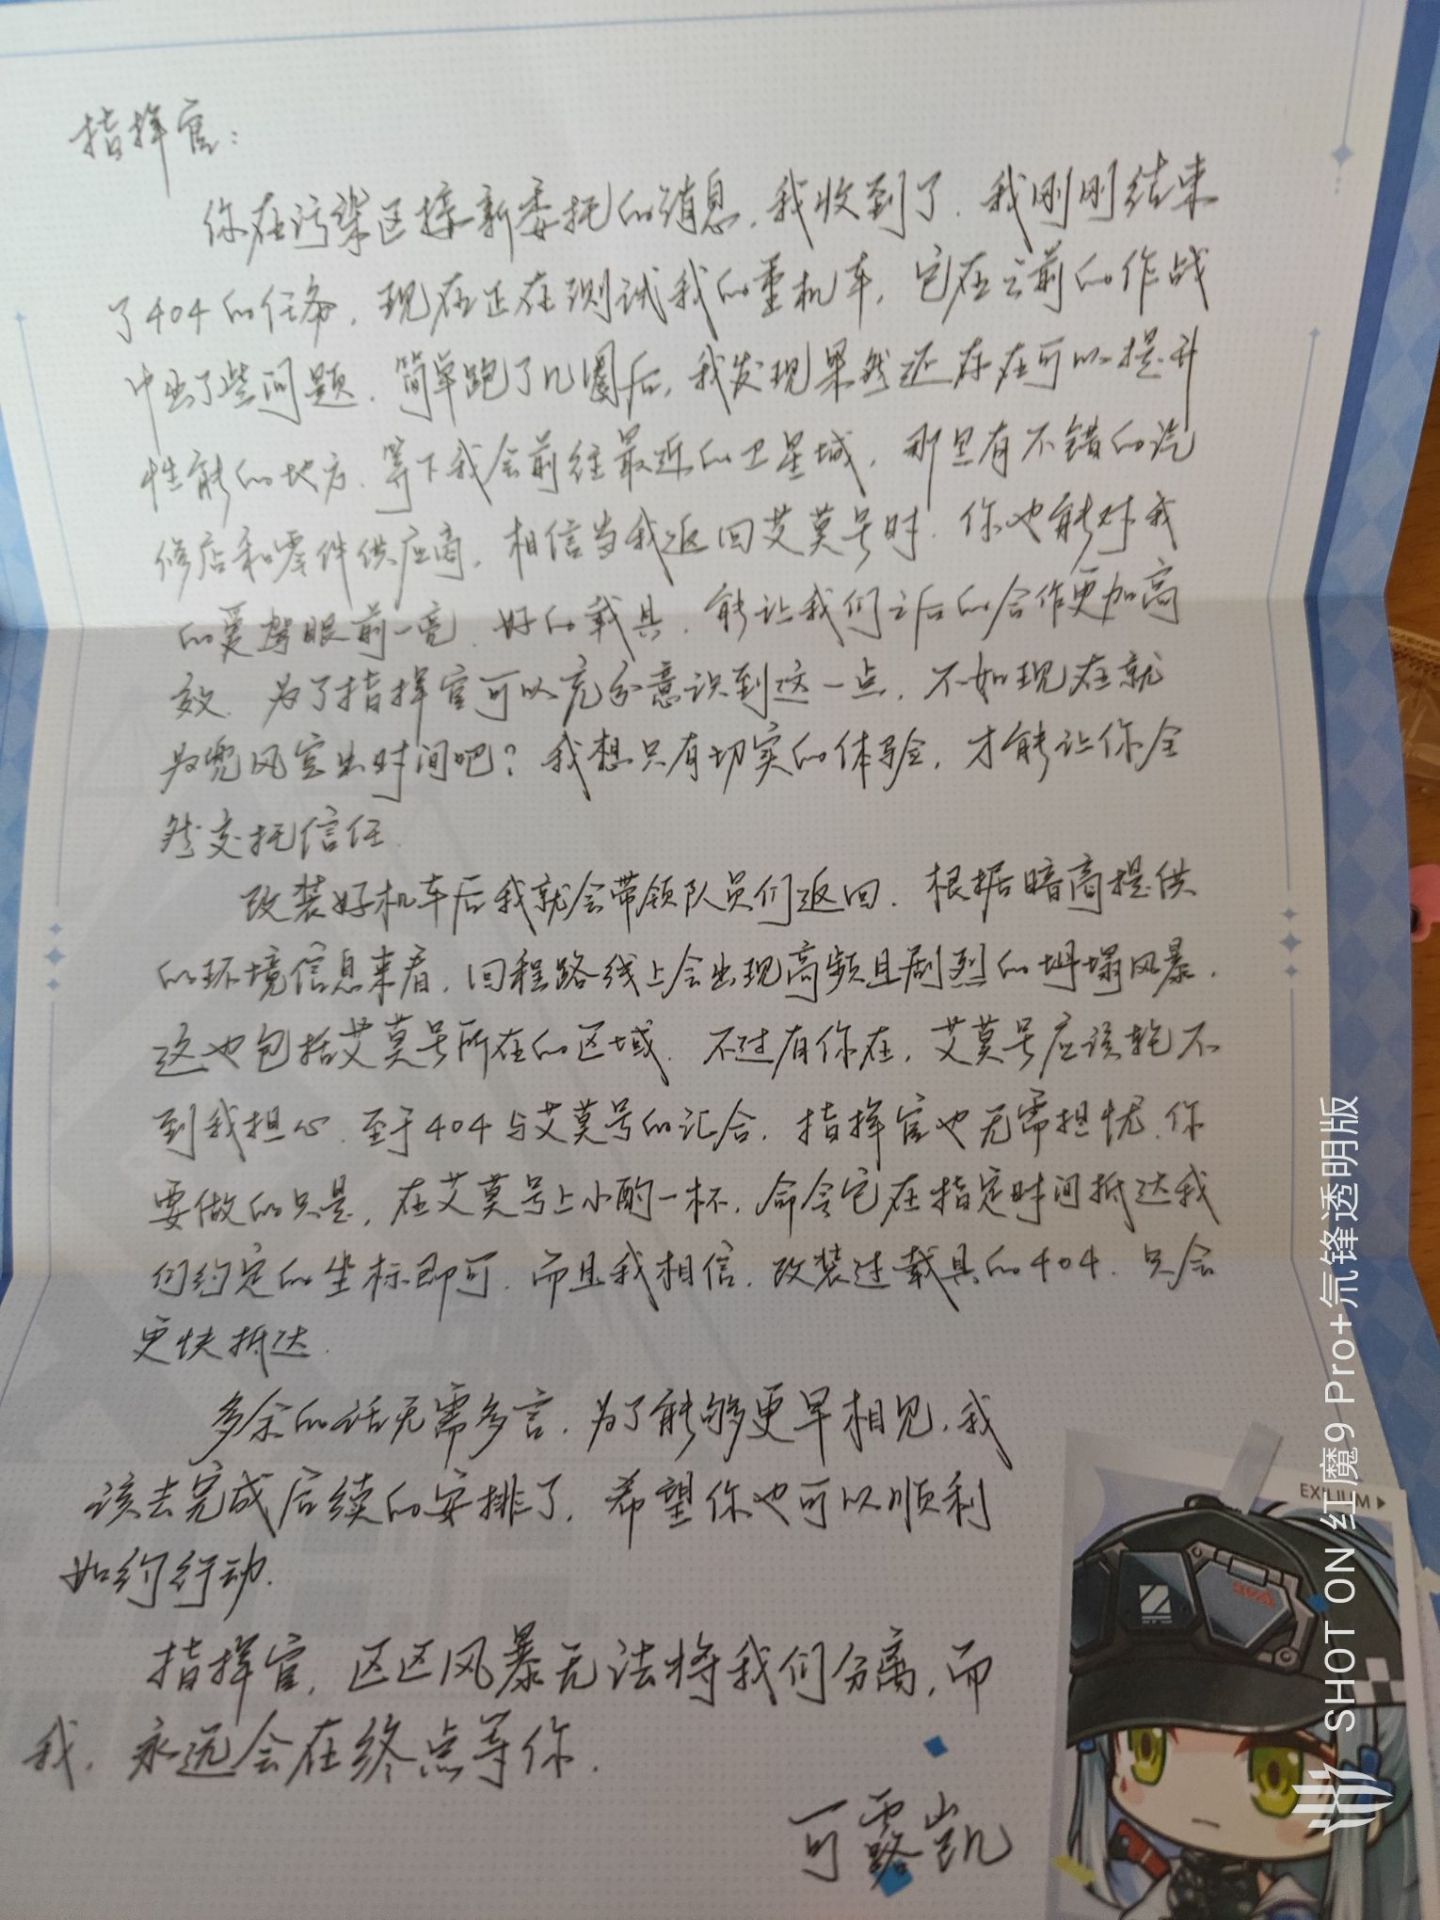 指挥官:
你在污染区接新委托的消息,我收到了.我刚刚结束
了404的任务,现在正在测试我的重机车,它在之前的作战
中出了些问题.简单跑了几圈后,我发现果然还存在可以提升
性能的地方.等下我会前往最近的卫星城,那里有不错的汽
修店和零件供应商,相信当我返回艾莫号时,你也能对我
的爱驾眼前一亮.好的载具,能让我们之后的合作更加高
效.为了指挥官可以充分意识到这一点,不如现在就
为兜风空出时间吧?我想只有切实的体验,才能让你全
然交托信任.
改装好机车后我就会带领队员们返回.根据暗商提供
的环境信息来看,回程路线上会出现高频且剧烈的坍塌风暴,
这也包括艾莫号所在的区域.不过有你在,艾莫号应该轮不
到我担心.至于404与艾莫号的汇合,指挥官也无需担忧.你
要做的只是,在艾莫号上小酌一杯,命令它在指定时间抵达我
们约定的坐标即可.而且我相信,改装过载具的404,只会
更快抵达.
多余的话无需多言,为了能够更早相见,我
该去完成后续的安排了,希望你也可以顺利
如约行动.
指挥官,区区风暴无法将我们分离,而
我,永远会在终点等你.
可露凯
EXILIUM
SHOT ON 红魔9 Pro+氘锋透明版